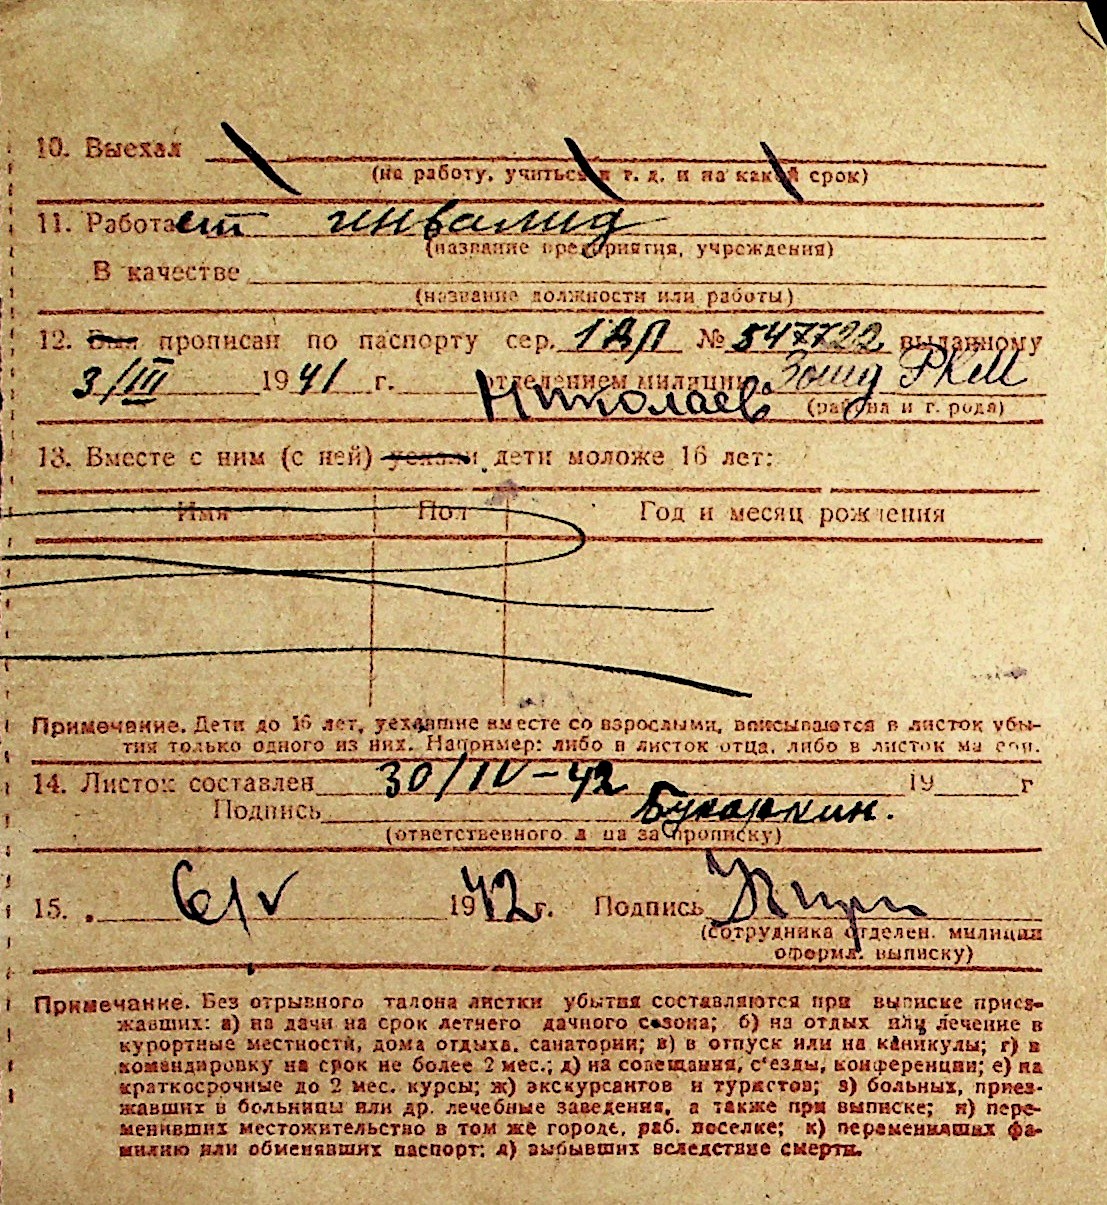 10. Выехал
(на работу, учиться и т. д. и на какой срок)
11. Работает инвалид
(название предприятия, учреждения)
В качестве
(название должности или работы)
12. Был прописан по паспорту сер. 1ДП № 547722 выданному
3/III 1941 г. отделением милиции РКМ
Николаев (района и города)
13. Вместе с ним (с ней) уехали дети моложе 16 лет:
Имя Пол Год и месяц рождения
Примечание. Дети до 16 лет, уехавшие вместе со взрослыми, вписываются в листок убы-
тия только одного из них. Например: либо в листок отца, либо в листок матери.
14. Листок составлен 30/IV-42 19 г
Подпись Бухаркин.
(ответственного лица за прописку)
15. 6/V 1942 г. Подпись
(сотрудника отделен. милиции
оформл. выписку)
Примечание. Без отрывного талона листки убытия составляются при выписке приез-
жавших: а) на дачи на срок летнего дачного сезона; б) на отдых или лечение в
курортные местности, дома отдыха, санатории; в) в отпуск или на каникулы; г) в
командировку на срок не более 2 мес.; д) на совещания, с'езды, конференции; е) на
краткосрочные до 2 мес. курсы; ж) экскурсантов и туристов; з) больных, приез-
жавших в больницы или др. лечебные заведения, а также при выписке; и) пере-
менивших местожительство в том же городе, раб. поселке; к) переменивших фа-
милию или обменявших паспорт; л) выбывших вследствие смерти.